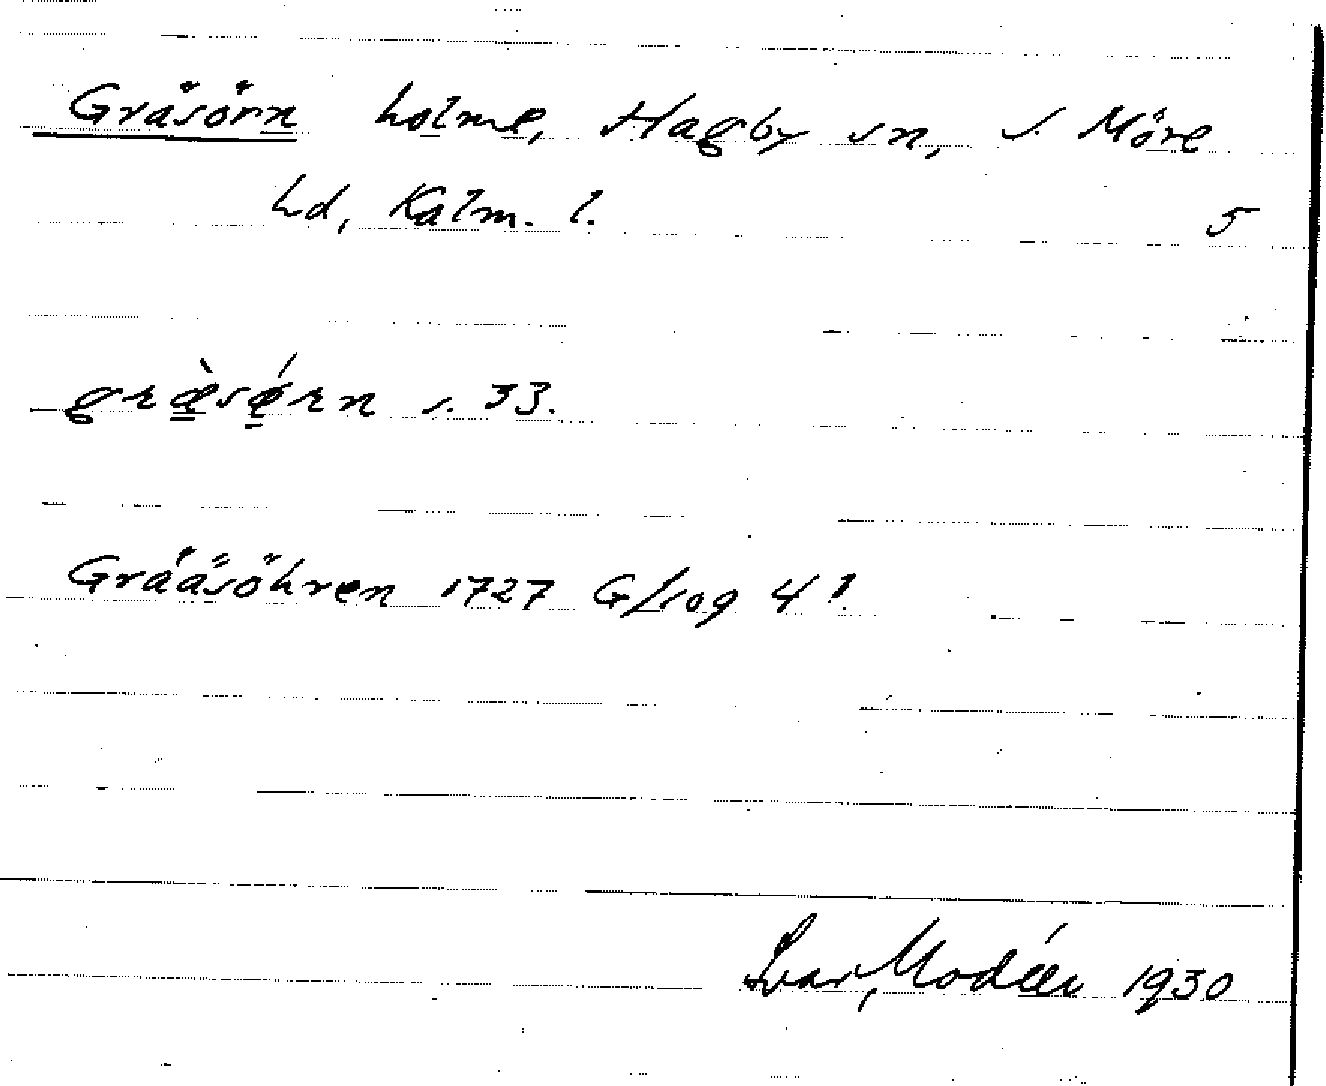 Gråsörn holme, Hagby sn, S. Möre
hd, Kalm. l.
5
græ̀sǿrn s. 33.
Grååsöhren 1727 G/109 4
Ivar Modéer 1930